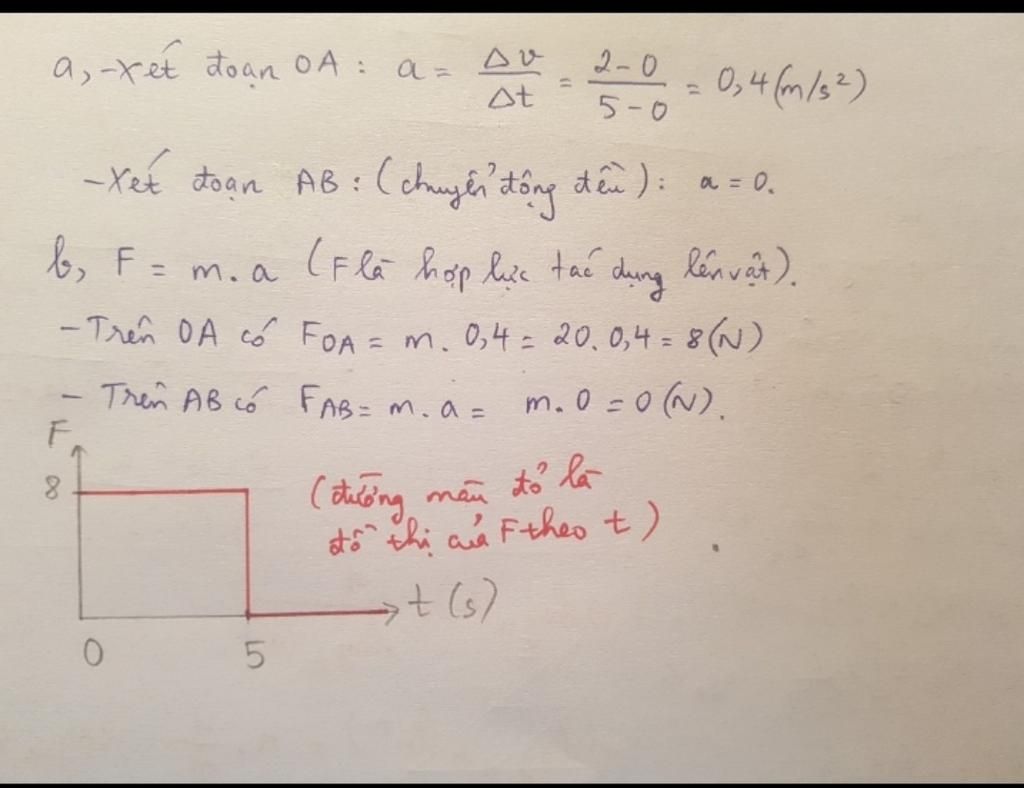 a, -Xét đoạn OA: a = Δv/Δt = 2-0/5-0 = 0,4 (m/s²)
-Xét đoạn AB: (chuyển động đều): a = 0.
b, F = m.a (F là hợp lực tác dụng lên vật).
-Trên OA có F_OA = m. 0,4 = 20. 0,4 = 8(N)
- Trên AB có F_AB = m.a = m.0 = 0(N).
F
8
(đường màu đỏ là
đồ thị của F theo t)
t(s)
0 5